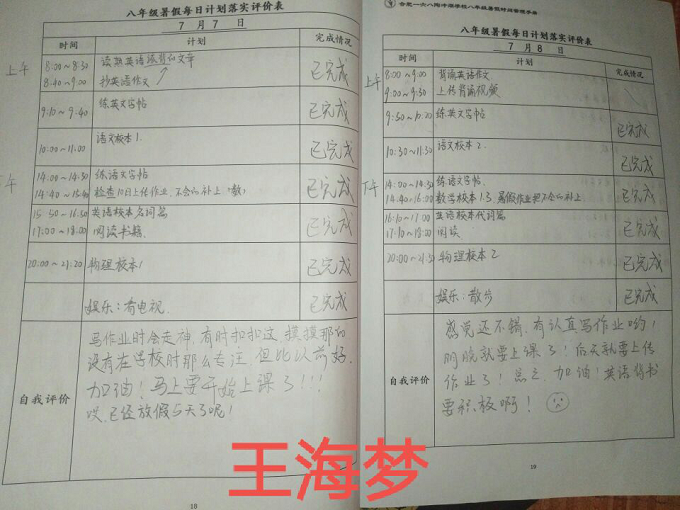 八年级暑假每日计划落实评价表
7月7日
时间 计划 完成情况
上午
8:00~8:30 读熟英语 作文 已完成
8:40~9:00 抄英语作文
9:10~9:40 练英文字帖 已完成
10:00~11:00 语文校本1. 已完成
下午
14:00~14:30 练语文字帖 已完成
14:40~15:40 检查10日上传作业,不会的补上
15:50~16:50 英语校本名词篇 已完成
17:00~18:00 阅读书籍.
20:00~21:20 物理校本1 已完成
娱乐:看电视. 已完成
自我评价
写作业时会走神,有时扣扣这,摸摸那的
没有在学校时那么专注,但比以前好.
加油!马上要开始上课了!!!
哎,已经放假5天了呢!
18
合肥一六八陶冲湖学校八年级暑假时间管理手册
八年级暑假每日计划落实评价表
7月8日
时间 计划 完成情况
上午
8:00~9:00 背诵英语作文 已完成
9:00~9:30 上传背诵视频
9:50~10:20 练英文字帖 已完成
10:30~11:30 语文校本2. 已完成
下午
14:00~14:30 练语文字帖. 已完成
14:40~16:00 数学校本1.3,暑假作业把不会的补上
16:10~17:00 英语校本代词篇 已完成
17:10~18:00 阅读
20:00~21:30 物理校本2 已完成
娱乐:散步 已完成
自我评价
感觉还不错,有认真写作业哟!
明晚就要上课了!后天就要上传
作业了!总之,加油!英语背书
要积极啊!
19
王海梦